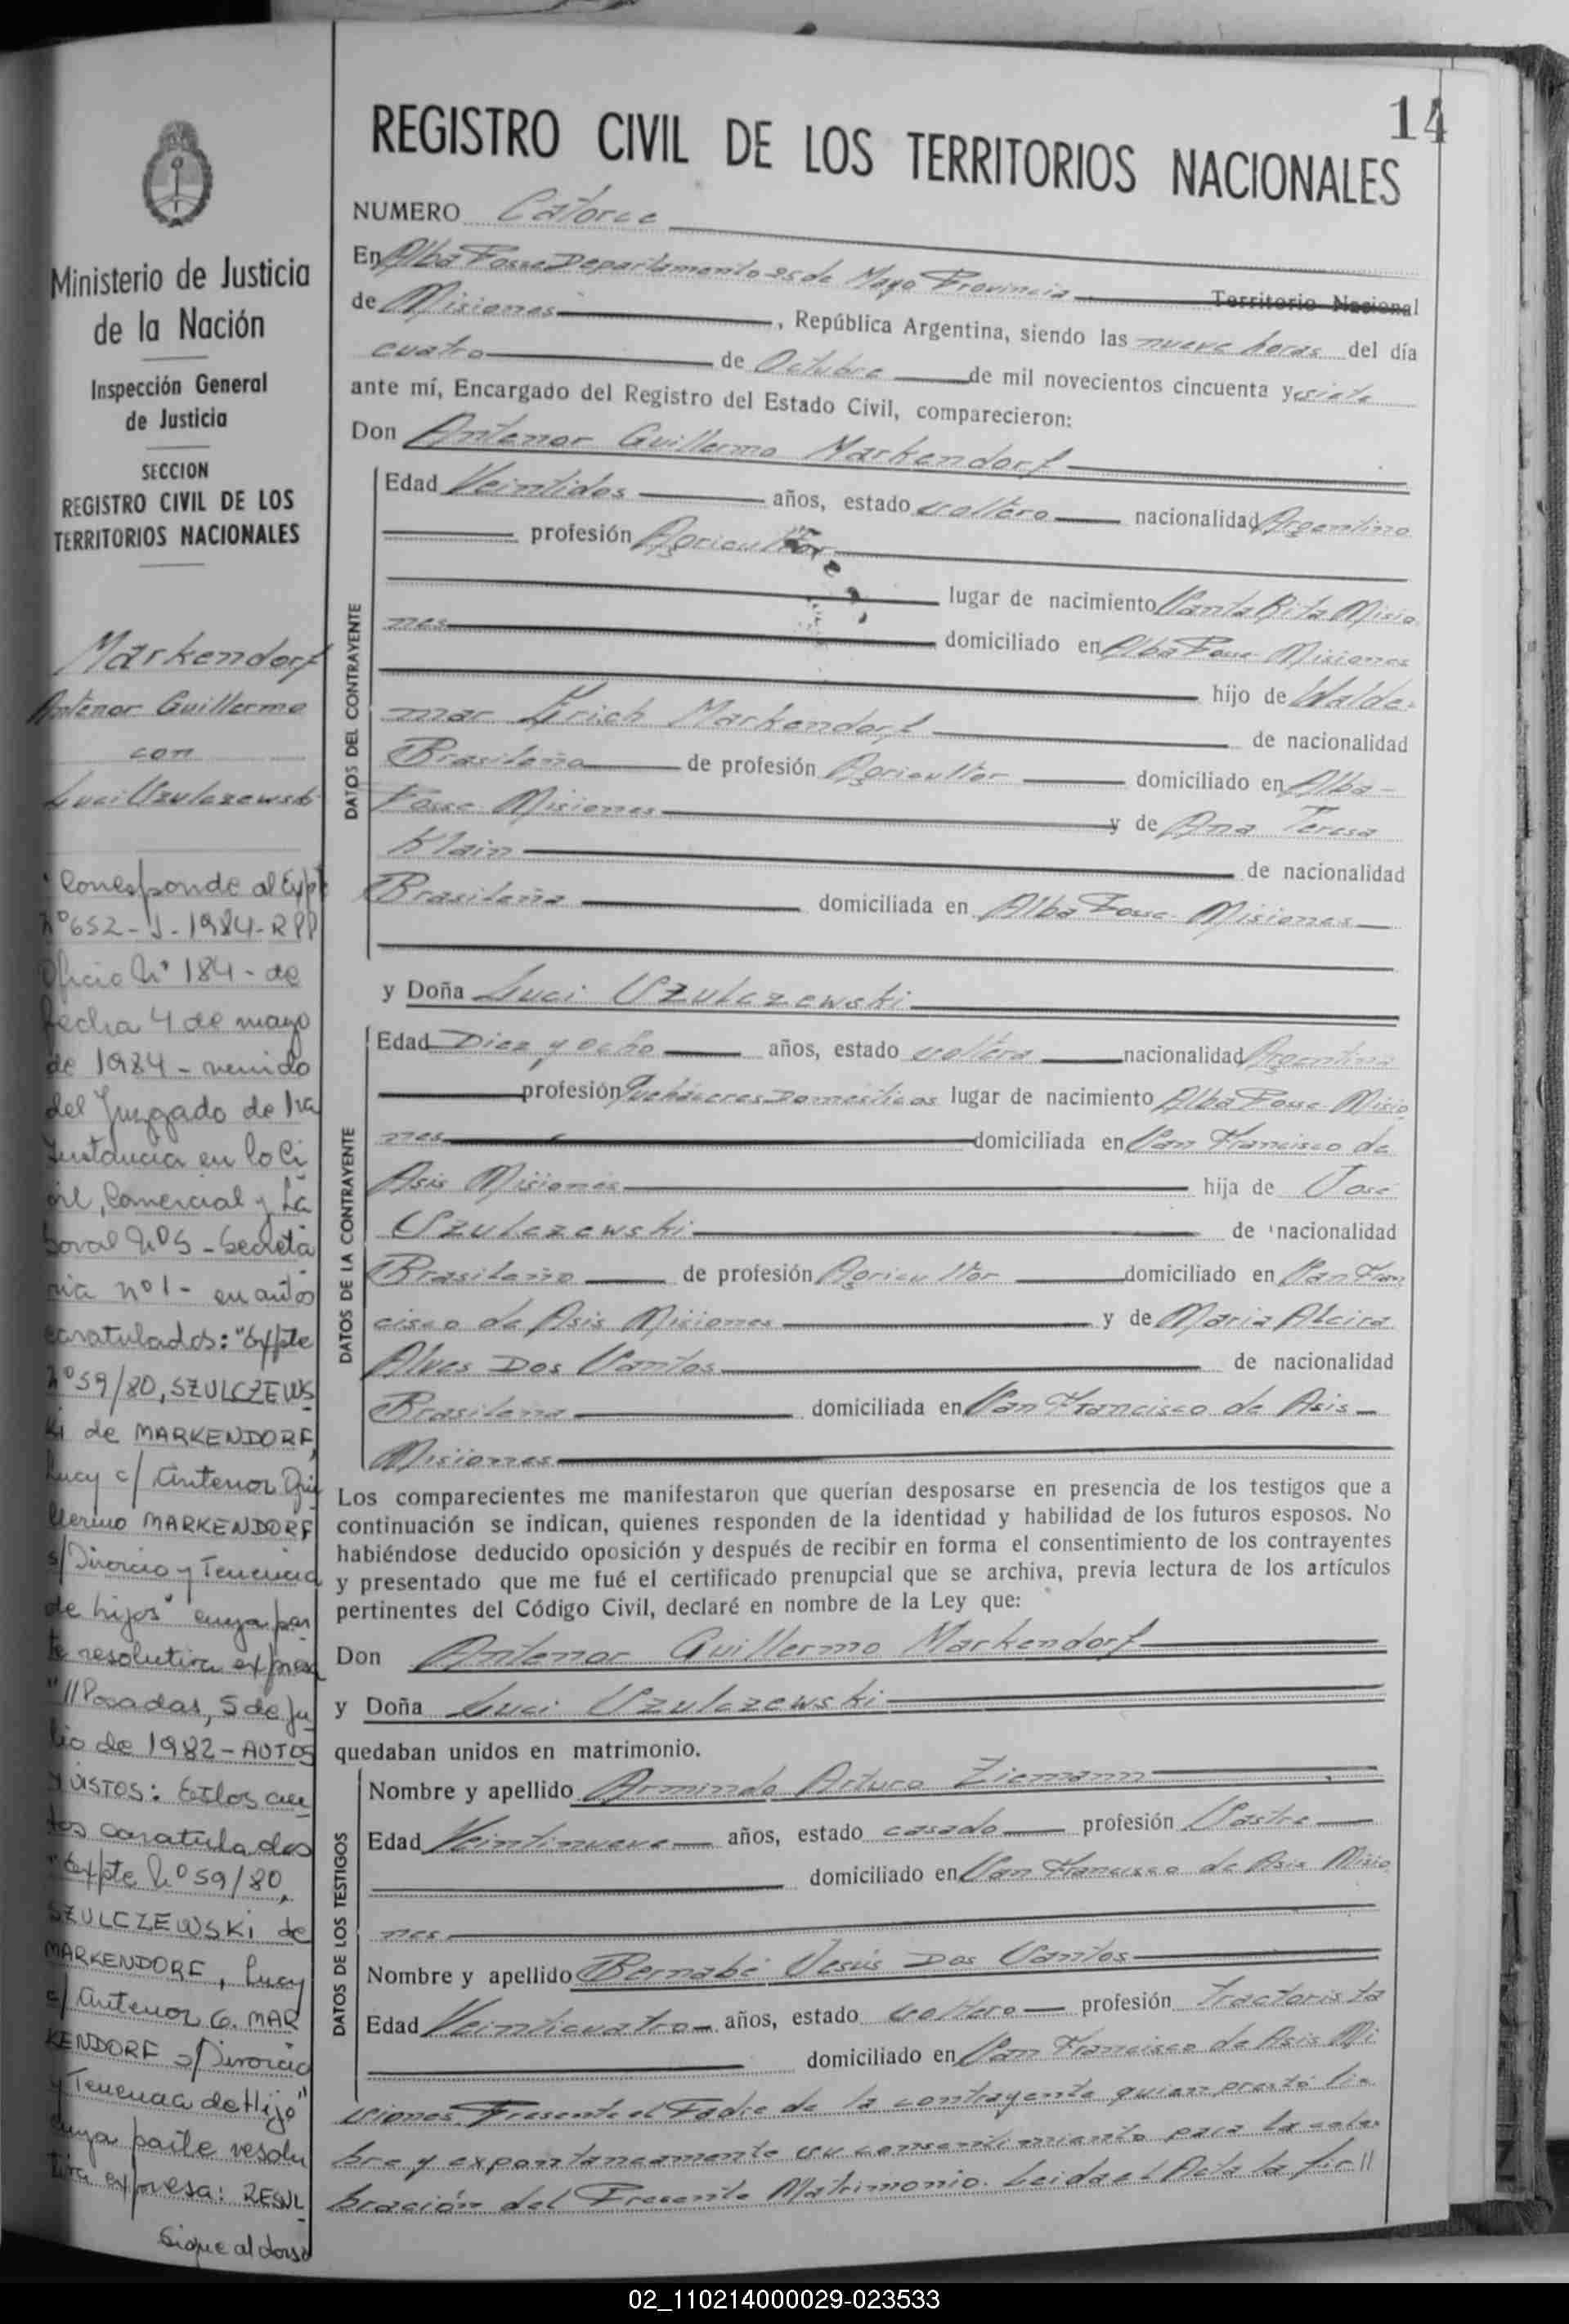 14
REGISTRO CIVIL DE LOS TERRITORIOS NACIONALES
NUMERO Catorce
En Alba Posse Departamento 25 de Mayo Provincia Territorio Nacional
de Misiones, República Argentina, siendo las nueve horas del día
cuatro de Octubre de mil novecientos cincuenta y siete
ante mí, Encargado del Registro del Estado Civil, comparecieron:
Don Antenor Guillermo Markendorf
DATOS DEL CONTRAYENTE
Edad Veintidos años, estado soltero nacionalidad Argentino
profesión Agricultor
lugar de nacimiento Santa Rita Misio
nes domiciliado en Alba Posse Misiones
hijo de Walde-
mar Erich Markendorf de nacionalidad
Brasileña de profesión Agricultor domiciliado en Alba-
Posse Misiones y de Ana Teresa
Klain de nacionalidad
Brasileña domiciliada en Alba Posse Misiones
y Doña Luci Szulczewski
DATOS DE LA CONTRAYENTE
Edad Diez y ocho años, estado soltera nacionalidad Argentina
profesión Quehaceres Domesticos lugar de nacimiento Alba Posse Misio
nes domiciliada en San Francisco de
Asis Misiones hija de José
Szulczewski de nacionalidad
Brasileño de profesión Agricultor domiciliado en San Fran
cisco de Asis Misiones y de Maria Alcira
Alves Dos Santos de nacionalidad
Brasilena domiciliada en San Francisco de Asis
Misiones
Los comparecientes me manifestaron que querían desposarse en presencia de los testigos que a
continuación se indican, quienes responden de la identidad y habilidad de los futuros esposos. No
habiéndose deducido oposición y después de recibir en forma el consentimiento de los contrayentes
y presentado que me fué el certificado prenupcial que se archiva, previa lectura de los artículos
pertinentes del Código Civil, declaré en nombre de la Ley que:
Don Antenor Guillermo Markendorf
y Doña Luci Szulczewski
quedaban unidos en matrimonio.
DATOS DE LOS TESTIGOS
Nombre y apellido Armindo Arturo Ziemann
Edad Veintinueve años, estado casado profesión Sastre
domiciliado en San Francisco de Asis Misio
nes
Nombre y apellido Bernabé Jesús Dos Santos
Edad Veinticuatro años, estado soltero profesión Tractorista
domiciliado en San Francisco de Asis Mi
siones. Presente el Padre de la contrayente quien prestó li-
bre y expontaneamente su consentimiento para la cele-
bración del Presente Matrimonio. Leida el Acta la fir//
Ministerio de Justicia
de la Nación
Inspección General
de Justicia
SECCION
REGISTRO CIVIL DE LOS
TERRITORIOS NACIONALES
Markendorf
Antenor Guillermo
con
Luci Szulczewski
Corresponde al Expte
Nº 652-J-1984-RPP
Oficio Nº 184- de
fecha 4 de mayo
de 1984 - venido
del Juzgado de 1ra
Instancia en lo Ci
vil, Comercial y La
boral Nº 5 - Secreta
ria nº 1 - en autos
caratulados: "Expte
Nº 59/80, SZULCZEWS
Ki de MARKENDORF,
Lucy c/ Antenor Gui
llermo MARKENDORF
s/ Divorcio y Tenencia
de hijos" cuya par
te resolutiva expresa
"// Posadas, 5 de Ju
lio de 1982 - AUTOS
y VISTOS: Estos au
tos caratulados
"Expte Nº 59/80,
SZULCZEWSKi de
MARKENDORF, Lucy
c/ Antenor G. MAR
KENDORF s/ Divorcio
y Tenencia de Hijo"
cuya parte resolu
tiva expresa: RESUL
Sigue al dorso
02_110214000029-023533